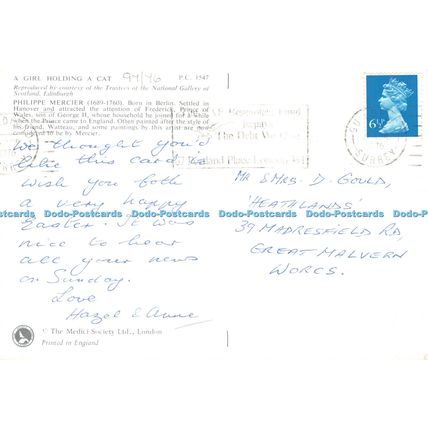 A GIRL HOLDING A CAT 97/76 P.C. 1547
Reproduced by courtesy of the Trustees of the National Gallery of
Scotland, Edinburgh
PHILIPPE MERCIER (1689-1760). Born in Berlin. Settled in
Hanover and attracted the attention of Frederick, Prince of
Wales, son of George II, whose household he joined for a while
when the Prince came to England. Often painted after the style of
his friend, Watteau, and some paintings by this artist are now
confirmed to be by Mercier.
We thought you'd
like this card to
wish you both
a very happy
Easter. It was
nice to hear
all your news
on Sunday.
Love
Hazel & Anne
© The Medici Society Ltd., London
Printed in England
6½P
SURREY
The Debt We Owe
Portland Place London W1
MR & MRS. D. GOULD,
'HEATHLANDS'
39 MADRESFIELD RD,
GREAT MALVERN
WORCS.
Dodo-Postcards Dodo-Postcards Dodo-Postcards Dodo-Postcards Dodo-Postcards